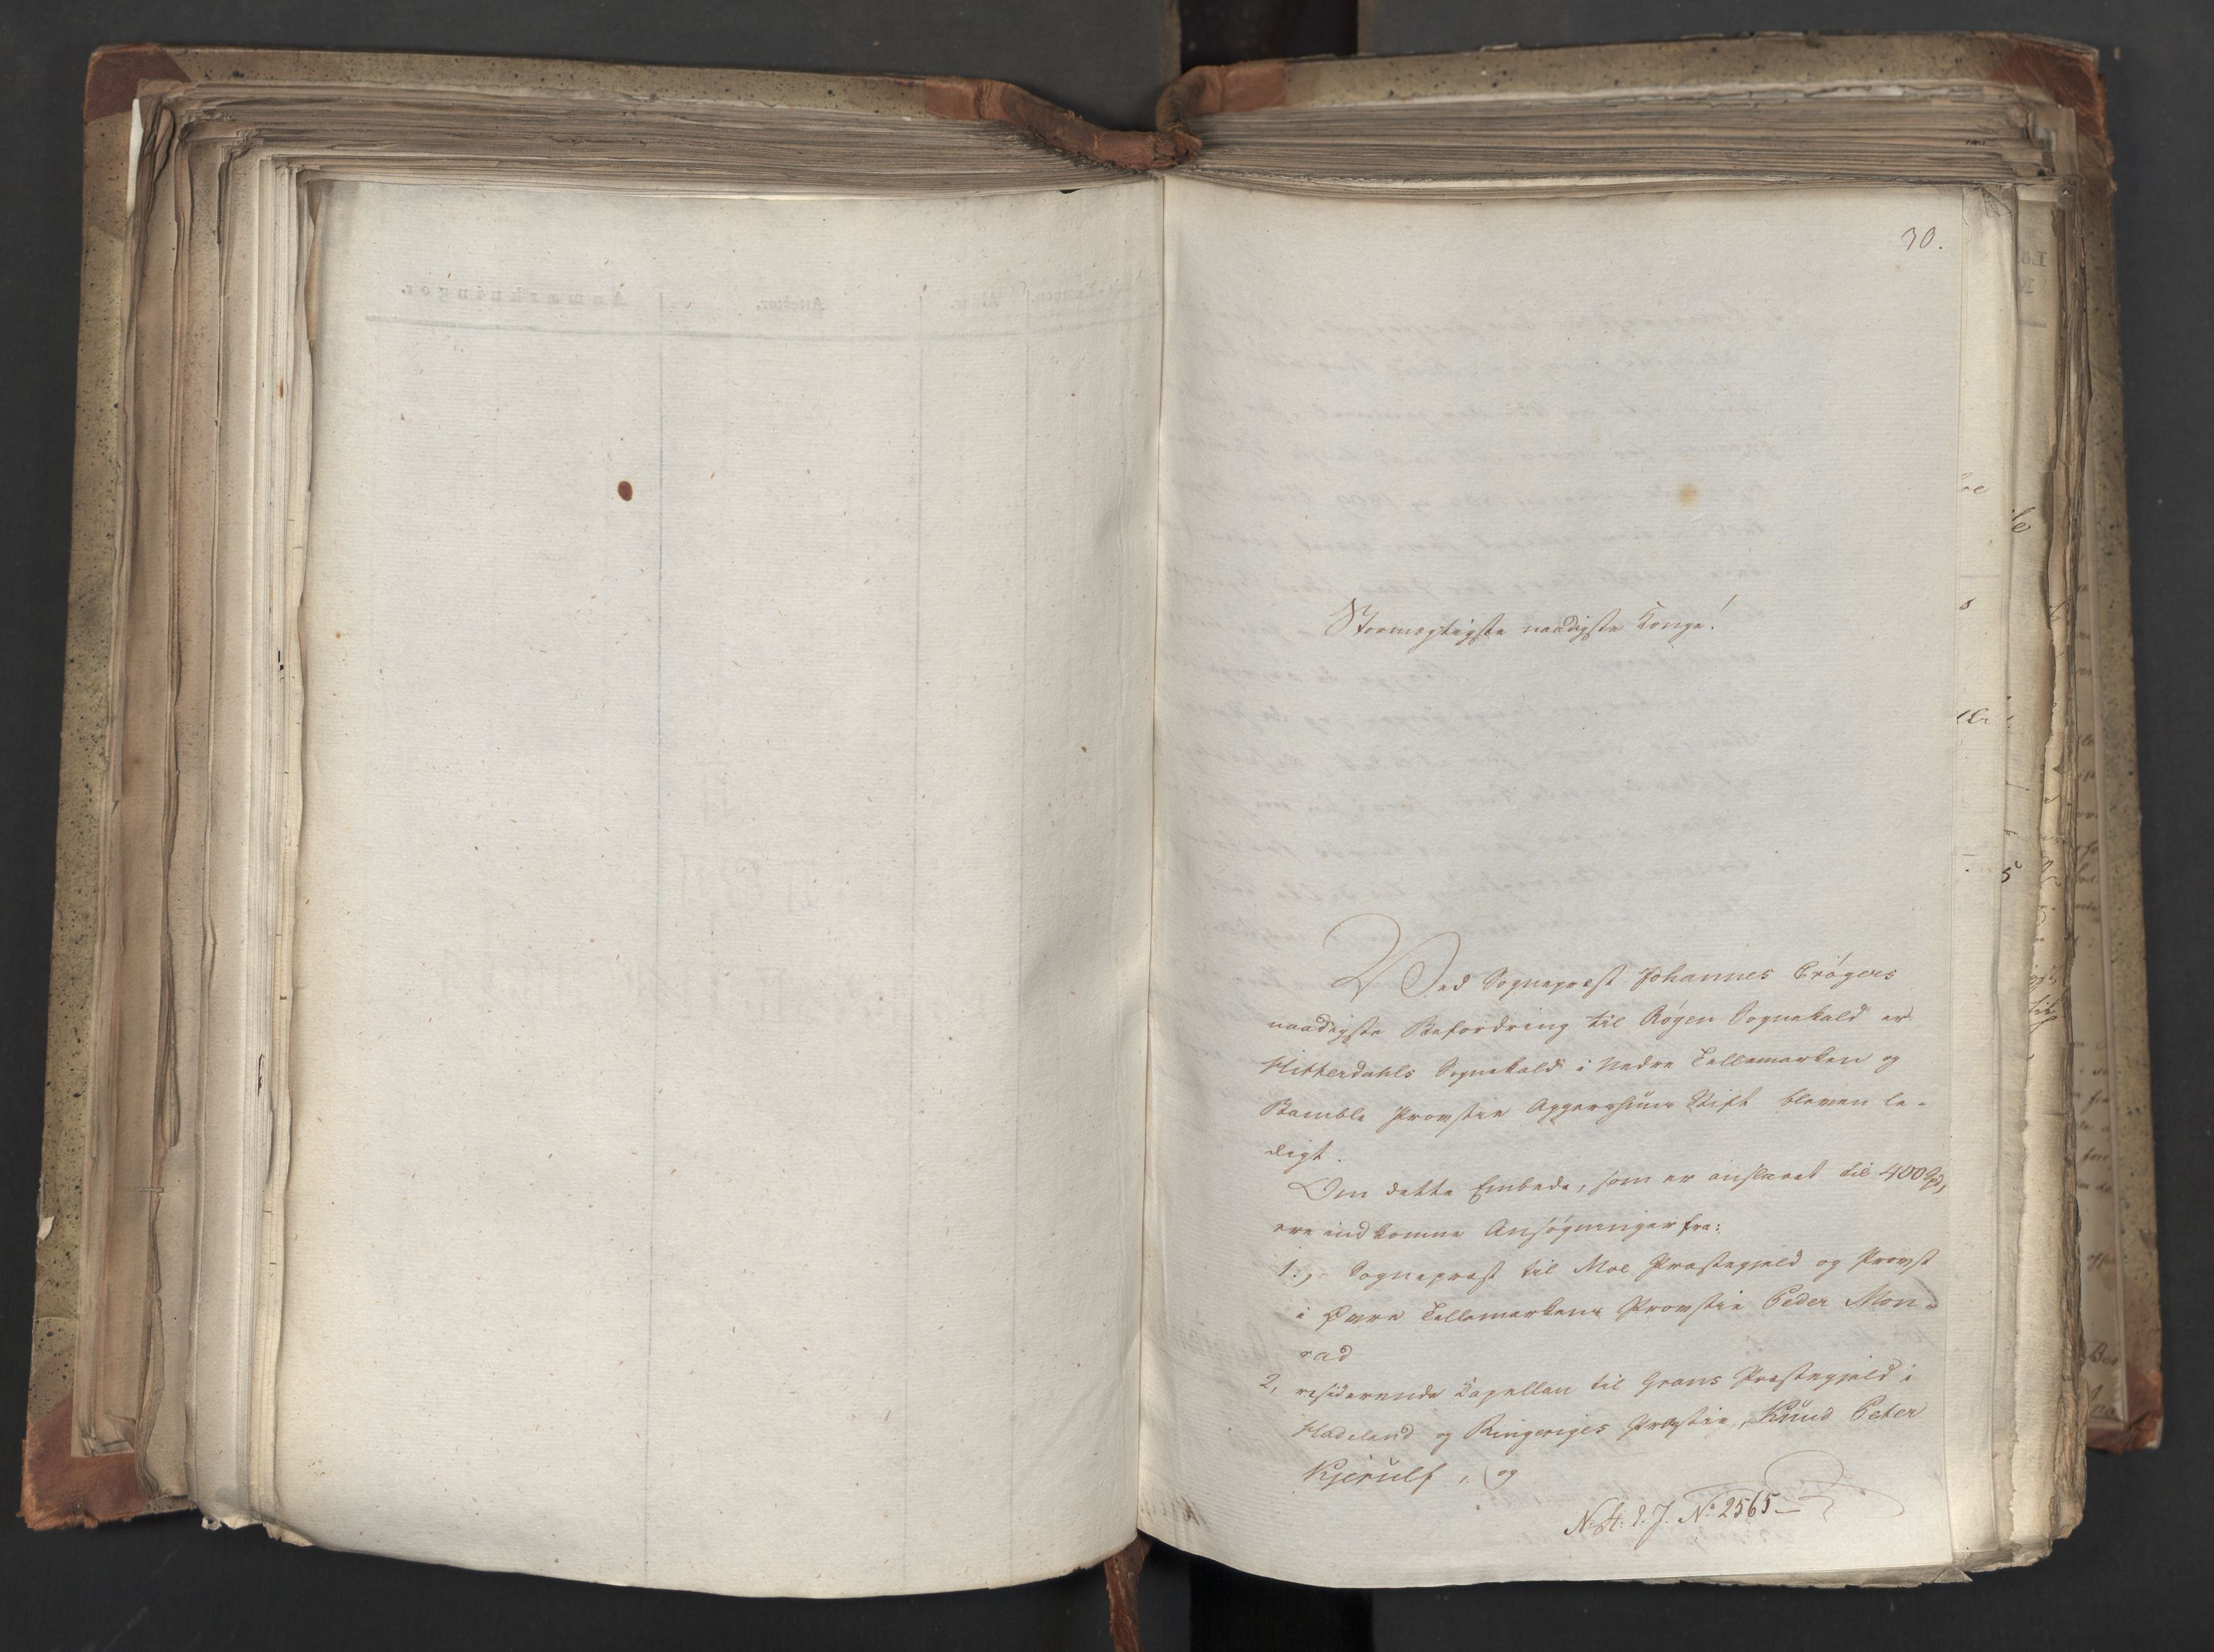 30.
Stormægtigste naadigste Konge!
Ved Sognepræst Johannes Crøgers
naadigste Befordring til Røgen Sognekald er
Hitterdahls Sognekald i Nedre Tellemarken og
Bamble Provstie Aggershuus Stift bleven le-
digt.
Om dette Embede, som er anslaaet til 400 Spd,
ere indkomne Ansøgninger fra:
1., Sognepræst til Moe Præstegjeld og Provst
i Øvre Tellemarkens Provstie Peder Mon-
rad
2, residerende Kapellan til Grans Præstegjeld i
Hadeland og Ringeriges Provstie, Knud Peter
Kjerulf, og
N. A: d. J. No 2565